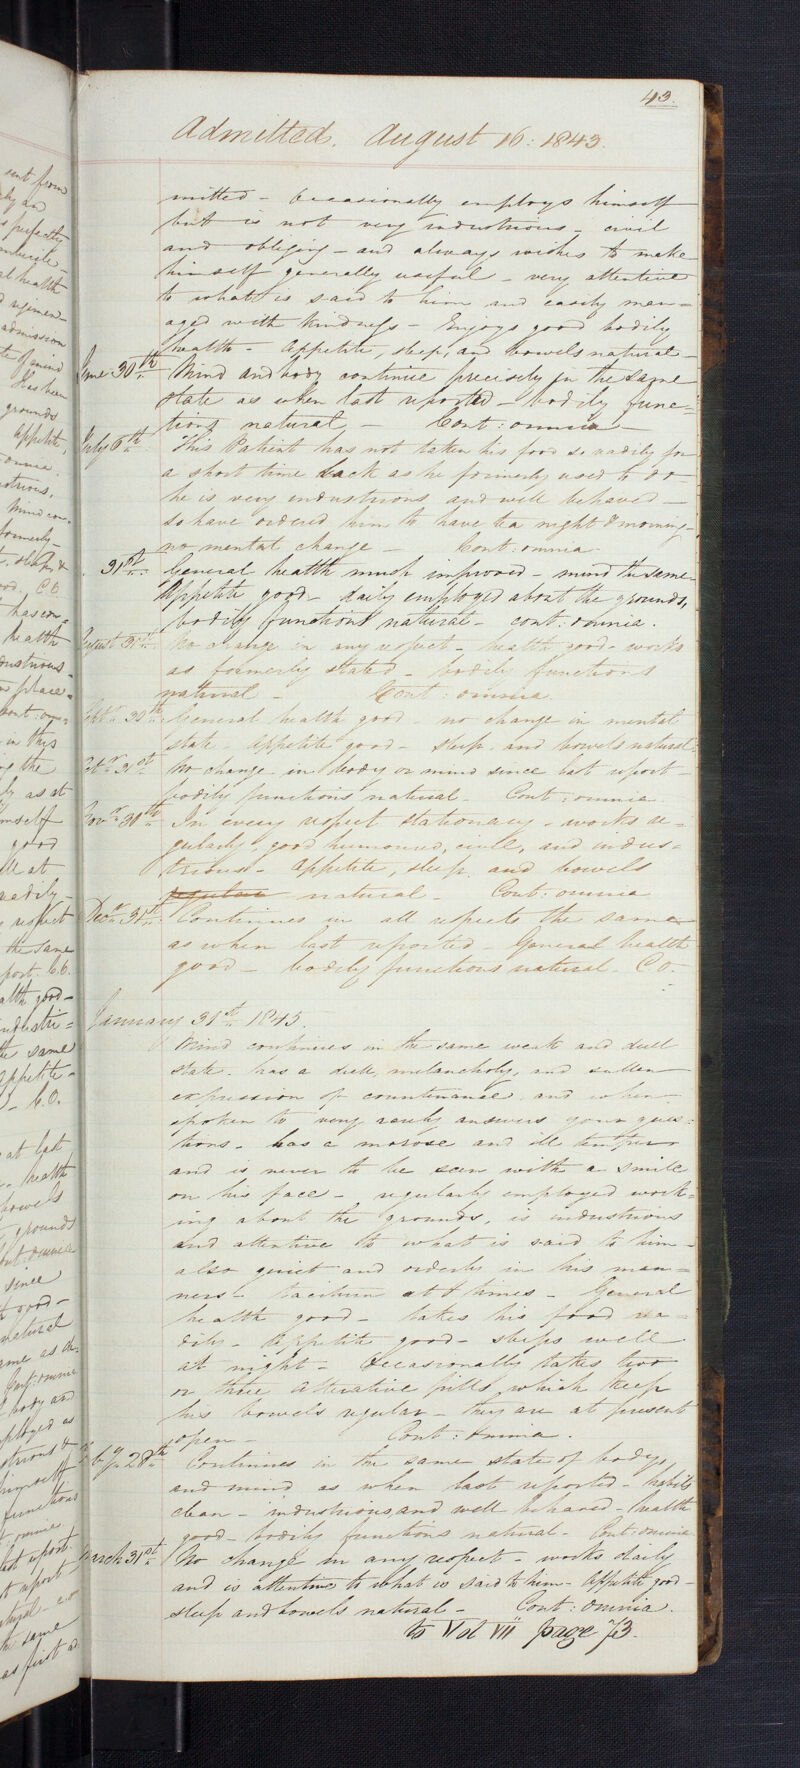 43.
Admitted. August 16: 1843.
mitted - Occasionally employs himself
but is not very industrious - civil
and obliging - and always wishes to make
himself generally useful - very attentive
to what is said to him and easily man=
aged with kindness - Enjoys good bodily
health - Appetite, sleep, and bowels natural -
June 30th Mind and body continue precisely in the same
state as when last reported - bodily func=
tions natural - Cont: omnia -
July 6th This Patient has not taken his food so readily for
a short time back as he formerly used to do -
he is very industrious and well behaved -
so have ordered him to have tea night & morning -
no mental change - Cont: omnia
31st General health much improved - mind the same
Appetite good - daily employed about the grounds,
bodily functions natural - cont: omnia.
August 31st No change in any respect - health good - works
as formerly stated - bodily functions
natural - Cont: omnia
Septr 30th General health good - no change in mental
state - Appetite good - sleep and bowels natural.
Octr 31st No change in body or mind since last report -
bodily functions natural - Cont: omnia.
Novr 30th In every respect stationary - works re=
gularly, good humoured, civil, and indus=
trious - Appetite, sleep, and bowels
regular natural - Cont: omnia
Decr 31st Continues in all respects the same
as when last reported - General health
good - bodily functions natural - C O.
January 31st 1845.
Mind continues in the same weak and dull
state. has a dull, melancholy, and sullen
expression of countenance and when
spoken to very rarely answers your ques=
tions. has a morose and ill temper
and is never to be seen with a smile
on his face - regularly employed work=
ing about the grounds, is industrious
and attentive to what is said to him -
also quiet and orderly in his man=
ners - taciturn at times - General
health good - takes his food rea=
dily - Appetite good - sleeps well
at night - Occasionally takes two
or three alterative pills which keep
his bowels regular - they are at present
open - Cont: omnia.
Feby 28th Continues in the same state of body
and mind as when last reported - habits
clean - industrious, and well behaved - health
good - bodily functions natural - Cont: omnia
March 31st No change in any respect - works daily
and is attentive to what is said to him - Appetite good -
sleep and bowels natural - Cont: omnia.
to Vol VII page 73.